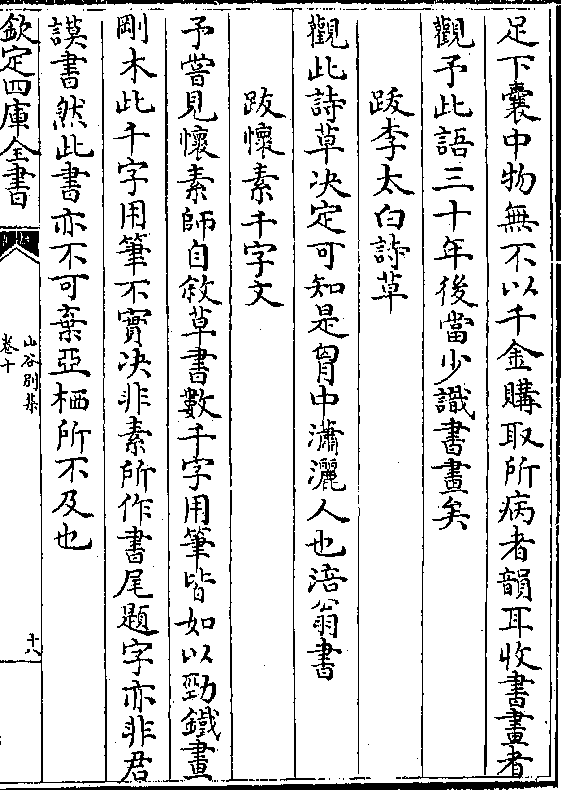 足下囊中物無不以千金購取所病者韻耳收書畫者
觀予此語三十年後當少識書畫矣
跋李太白詩草
觀此詩草决定可知是胷中瀟灑人也涪翁書
跋懷素千字文
予嘗見懷素師自敘草書數千字用筆皆如以勁鐵畫
剛木此千字用筆不實决非素所作書尾題字亦非君
謨書然此書亦不可棄亞栖所不及也
欽定四庫全書
山谷别集
卷十
十八